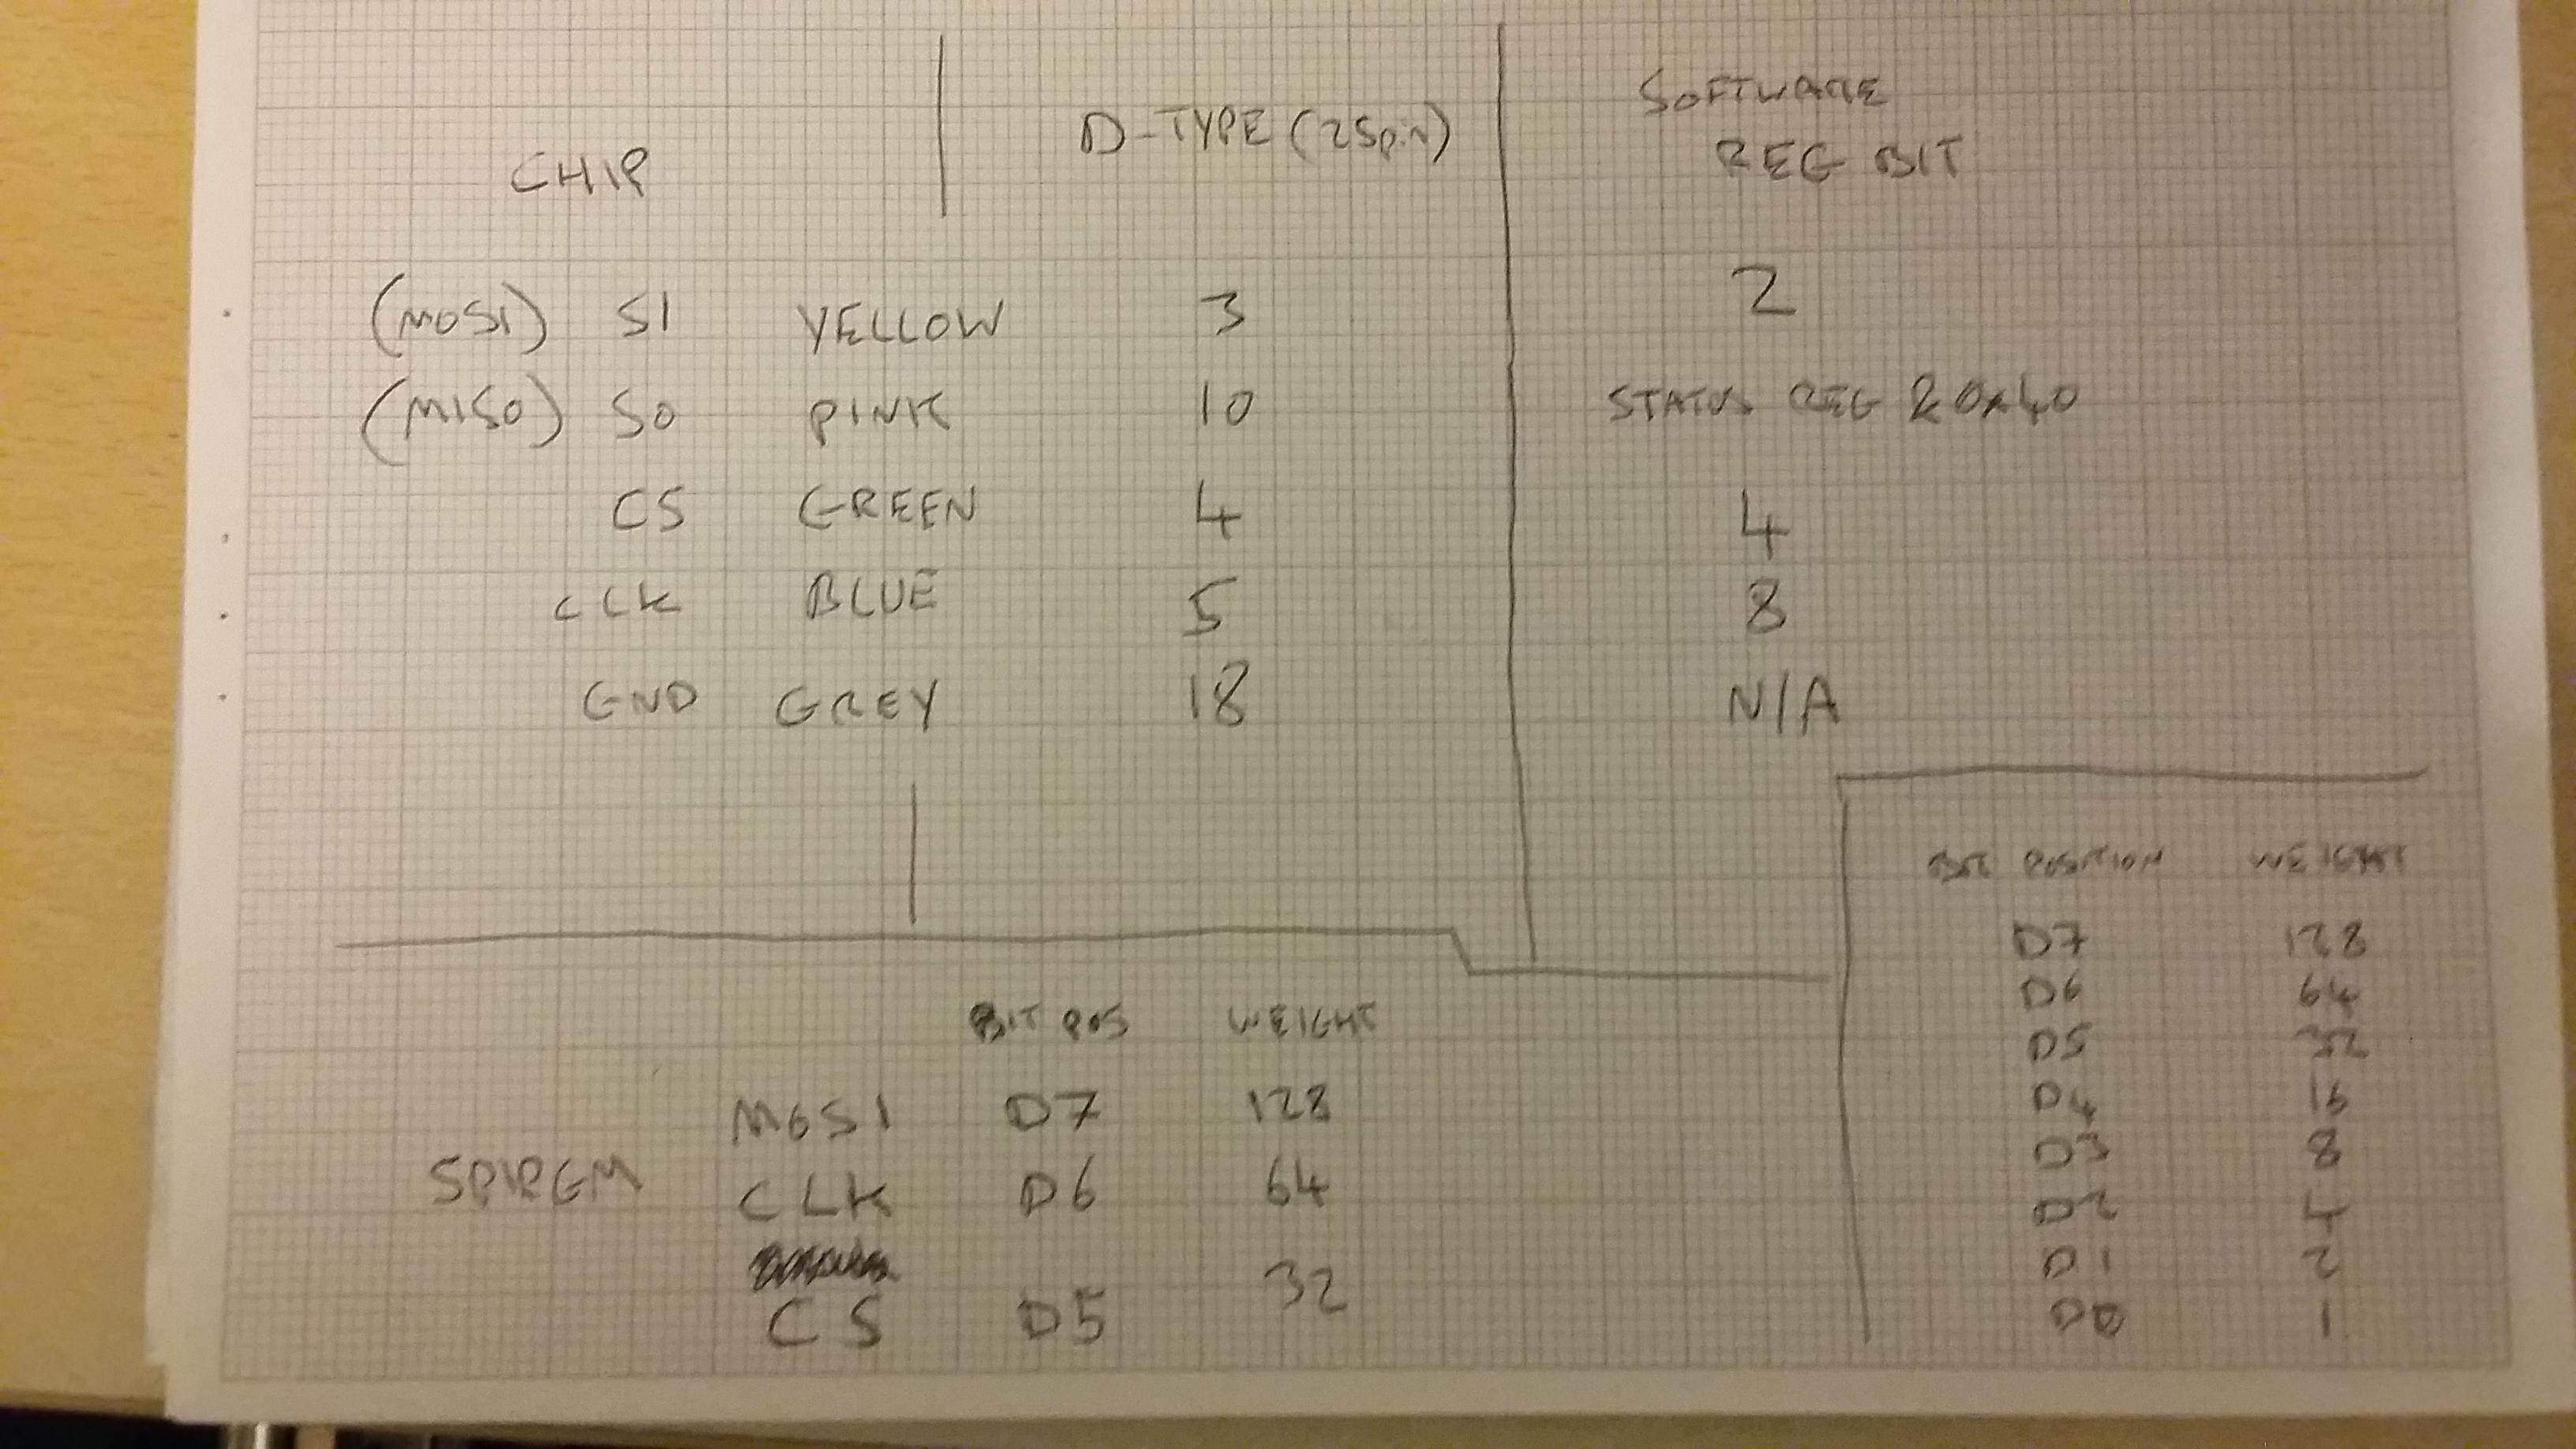 CHIP D-TYPE (25pin) SOFTWARE
REG BIT
(MOSI) SI YELLOW 3 2
(MISO) SO PINK 10 STATUS REG & 0x40
CS GREEN 4 4
CLK BLUE 5 8
GND GREY 18 N/A
BIT POS WEIGHT
MOSI D7 128
SPIPGM CLK D6 64
CS D5 32
BIT POSITION WEIGHT
D7 128
D6 64
D5 32
D4 16
D3 8
D2 4
D1 2
D0 1